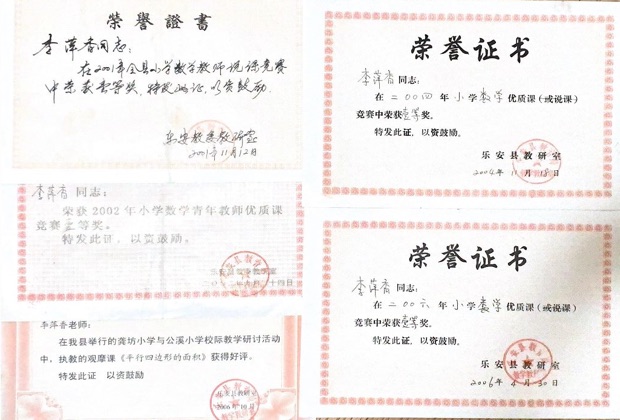 荣誉證書
李萍香同志：
在2001年全县小学数学教师说课竞赛
中荣获壹等奖，特发此证，以资鼓励。
乐安教委教研室
2001年11月12日
李萍香同志：
荣获2002年小学数学青年教师优质课
竞赛等奖。
特发此证，以资鼓励。
李萍香老师：
在我县举行的龚坊小学与公溪小学校际教学研讨活动
中，执教的观摩课《平行四边形的面积》获得好评。
特发此证 以资鼓励
乐安县教研室
2006年10月
荣誉证书
李萍香同志：
在二00四年小学数学优质课（或说课）
竞赛中荣获壹等奖。
特发此证，以资鼓励。
乐安县教研室
2004年11月18日
荣誉证书
李萍香同志：
在二00六年小学数学优质课（或说课）
竞赛中荣获壹等奖。
特发此证，以资鼓励。
乐安县教研室
2006年4月30日